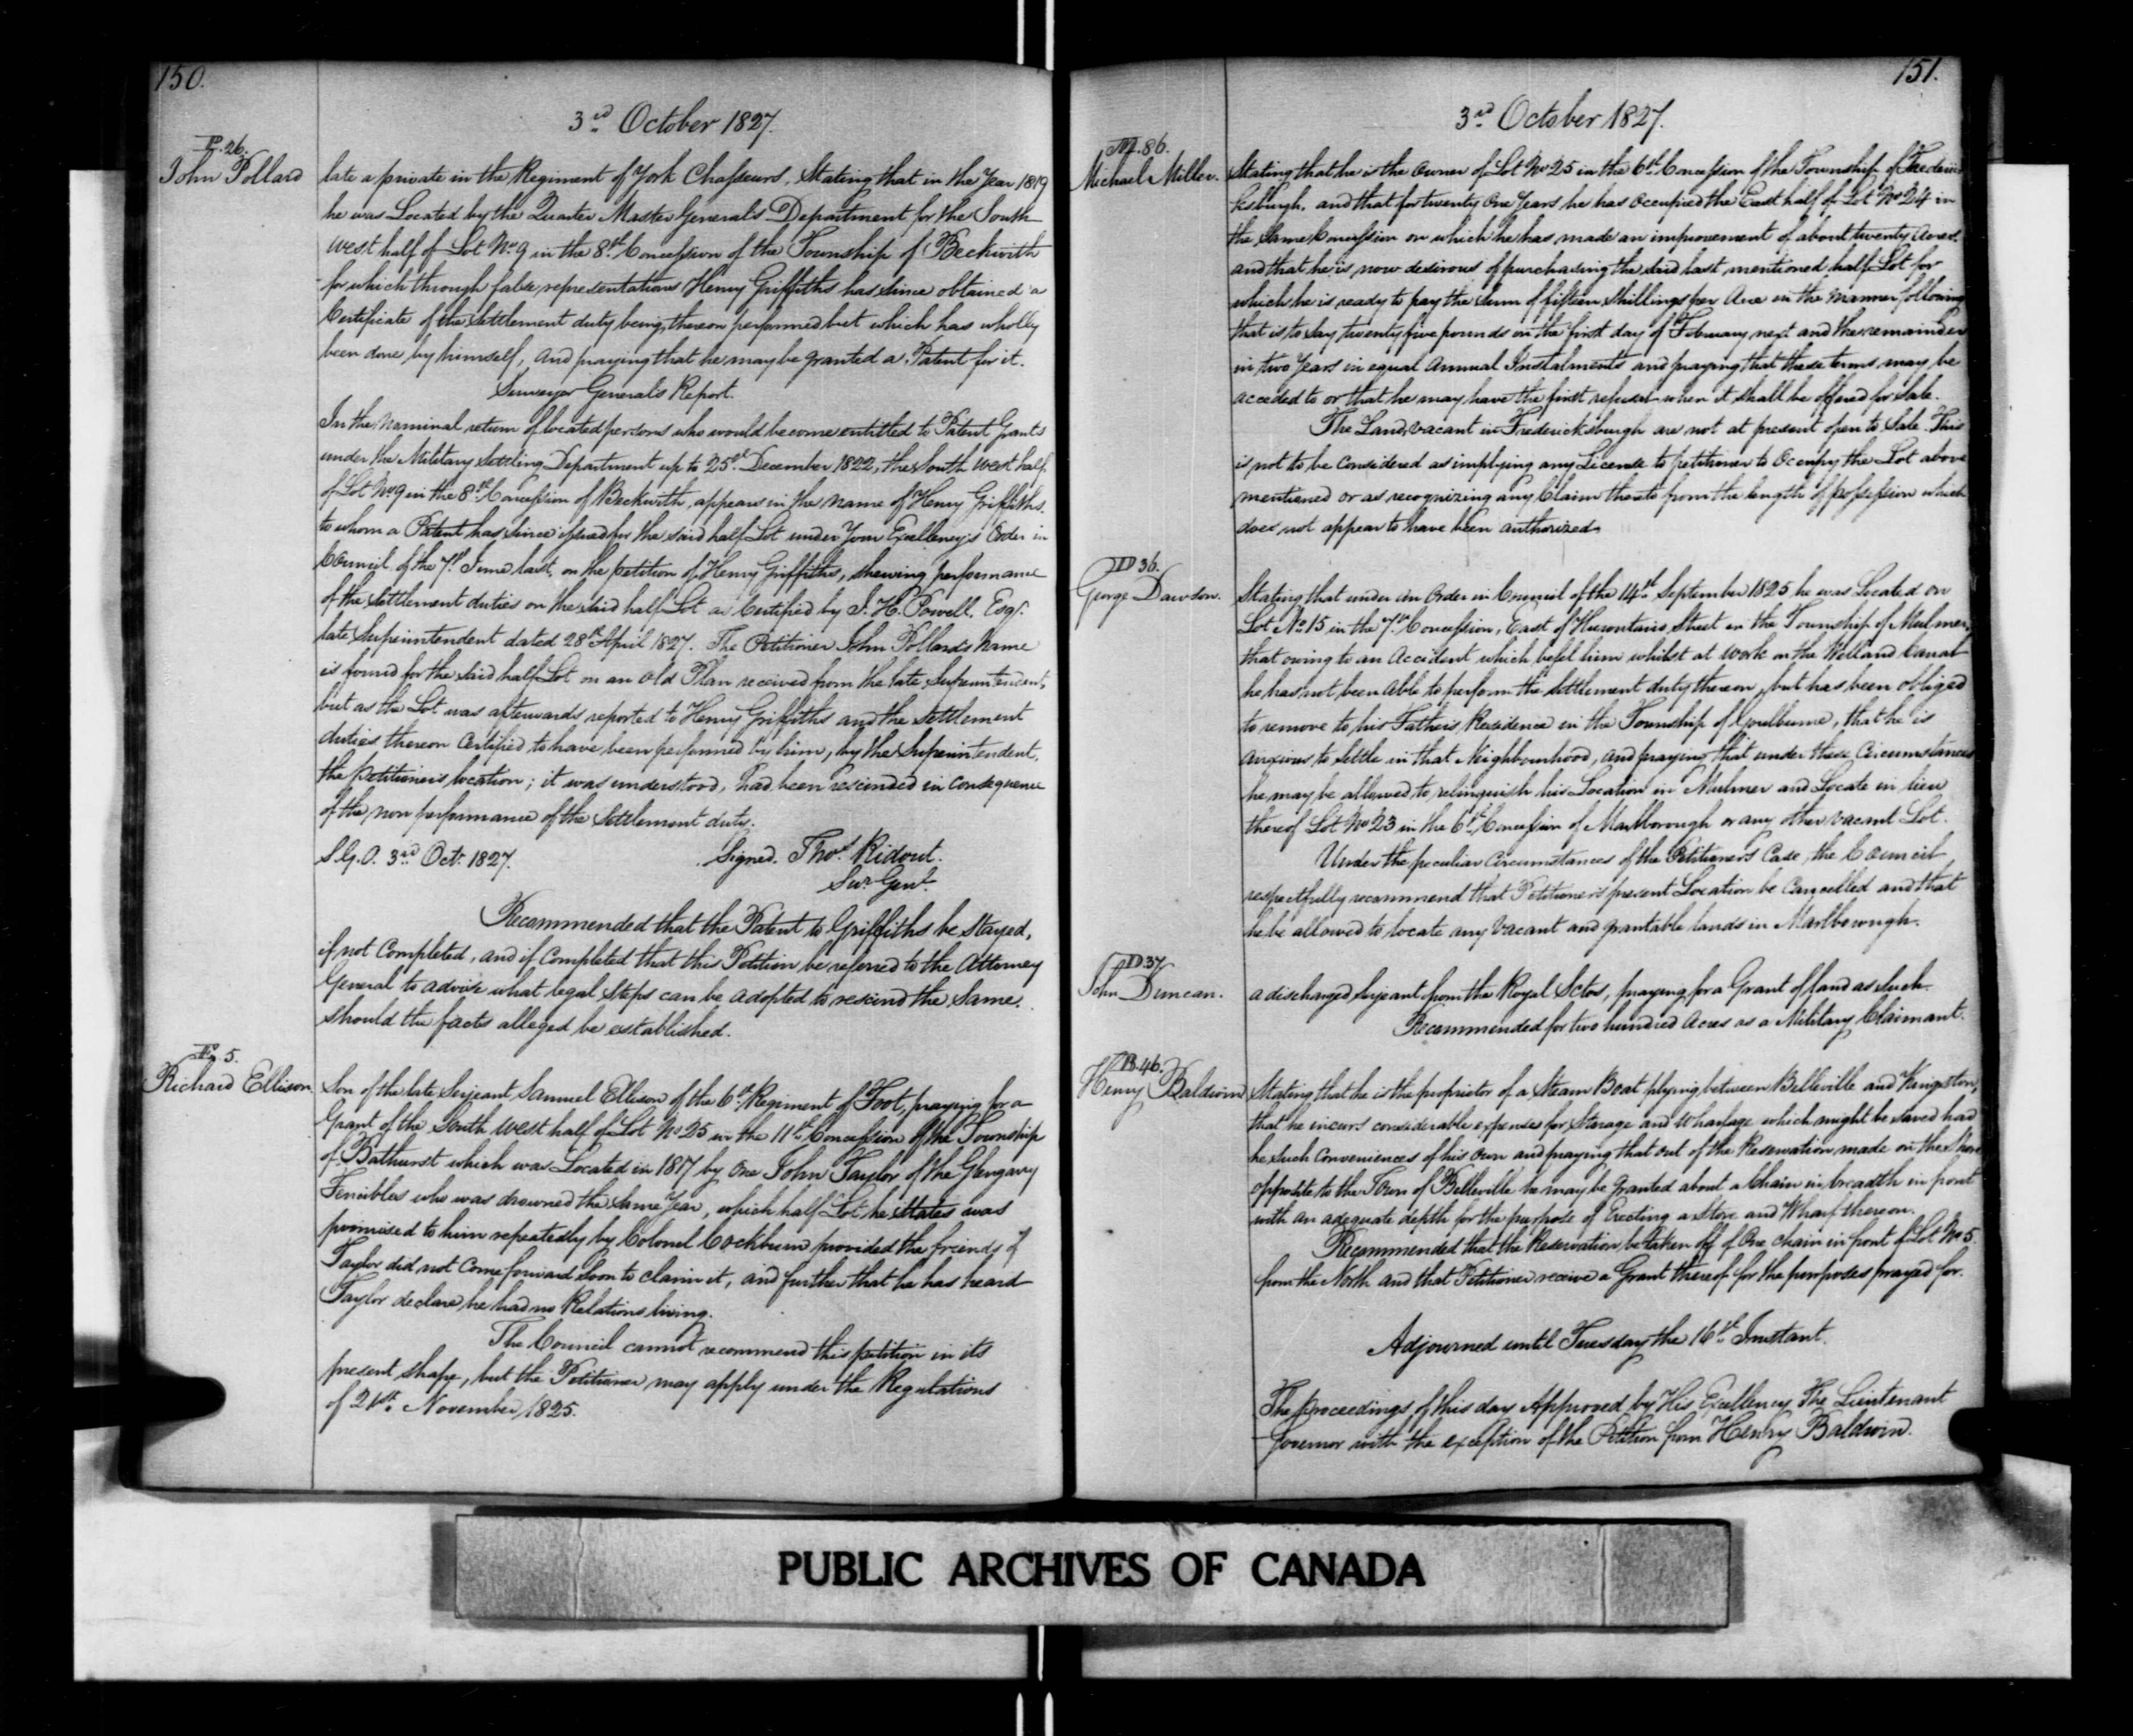 150.
3rd October 1827.
P.26.
John Pollard
late a private in the Regiment of York Chasseurs, Stating that in the Year 1819
he was Located by the Quarter Master General's Department for the South
West half of Lot No. 9 in the 8th Concession of the Township of Beckwith
for which through false representations Henry Griffiths has since obtained a
Certificate of the Settlement duty being thereon performed but which has wholly
been done by himself, And praying that he may be granted a Patent for it.
Surveyor General's Report.
In the Nominal return of located persons who would become entitled to Patent Grants
under the Military Settling Department up to 25th December 1822, the South West half
of Lot No 9 in the 8th Concession of Beckwith, appears in the name of Henry Griffiths.
to whom a Patent has since issued for the said half Lot under Your Excellency's Order in
Council of the 7th June last, on the petition of Henry Griffiths, shewing performance
of the Settlement duties on the said half Lot as Certified by J. H. Powell, Esqr.
late Superintendent dated 28th April 1827. The Petitioner John Pollard's Name
is found for the said half Lot on an Old Plan received from the late Superintendent,
but as the Lot was afterwards reported to Henry Griffiths and the Settlement
duties thereon Certified to have been performed by him, by the Superintendent,
the Petitioner's location; it was understood, had been rescinded in Consequence
of the non performance of the Settlement duty.
S.G.O. 3rd Octr 1827.
Signed. Thos Ridout.
Surr Genl.
Recommended that the Patent to Griffiths be Stayed,
if not Completed, and if Completed that this Petition be referred to the Attorney
General to advise what legal Steps can be adopted to rescind the Same.
should the facts alleged be established.
E. 5.
Richard Ellison.
Son of the late Serjeant Samuel Ellison of the 6th Regiment of Foot, praying for a
Grant of the South West half of Lot No 25 in the 11th Concession of the Township
of Bathurst which was Located in 1817 by One John Taylor of the Glengary
Fencibles who was drowned the Same Year, which half Lot he States was
promised to him repeatedly by Colonel Cockburn provided the friends of
Taylor did not Come forward Soon to claim it, and further that he has heard
Taylor declare he had no Relations living.
The Council cannot recommend this petition in its
present shape, but the Petitioner may apply under the Regulations
of 21st November 1825.
151.
3rd October 1827.
M.86.
Michael Miller.
Stating that he is the Owner of Lot No 25 in the 6th Concession of the Township of Frederic
ksburgh. and that for twenty One Years he has Occupied the East half of Lot No 24 in
the Same Concession on which he has made an improvement of about twenty Acres.
and that he is now desirous of purchasing the said last mentioned half Lot for
which he is ready to pay the Sum of fifteen Shillings per Acre in the manner following
that is to say twenty five pounds on the first day of February next and the remainder
in two Years in equal Annual Instalments and praying that these terms may be
acceded to or that he may have the first refusal when it shall be offered for Sale.
The Lands vacant in Fredericksburgh are not at present open to Sale. This
is not to be Considered as implying any License to petitioner to Occupy the Lot above
mentioned or as recognizing any Claim thereto from the length of possession which
does not appear to have been authorized.
D 36.
George Dawson.
Stating that under an Order in Council of the 14th September 1825 he was Located on
Lot No 15 in the 7th Concession, East of Hurontario Street in the Township of Mulmer,
that owing to an Accident which befel him whilst at Work on the Welland Canal
he has not been Able to perform the Settlement duty thereon, but has been obliged
to remove to his Father's Residence in the Township of Goulburne, that he is
anxious to Settle in that Neighbourhood, and praying that under these Circumstances
he may be allowed to relinquish his Location in Mulmer and Locate in lieu
thereof Lot No 23 in the 6th Concession of Marlborough or any other Vacant Lot.
Under the peculiar Circumstances of the Petitioner's Case, the Council
respectfully recommend that Petitioner's present Location be Cancelled and that
he be allowed to locate any Vacant and grantable lands in Marlborough.
D.37
John Duncan.
a discharged Serjeant from the Royal Scots, praying for a Grant of land as Such.
Recommended for two hundred Acres as a Military Claimant.
B.46.
Henry Baldwin
Stating that he is the proprietor of a Steam Boat plying between Belleville and Kingston,
that he incurs considerable expense for Storage and Wharfage which might be saved had
he Such Conveniences of his own and praying that out of the Reservation made on the Shore
opposite to the Town of Belleville he may be granted about a Chain in breadth in front
with an adequate depth for the purpose of Erecting a Store and Wharf thereon.
Recommended that the Reservation be taken off of One chain in front of Lot No 5.
from the North and that Petitioner receive a Grant thereof for the purposes prayed for.
Adjourned until Tuesday the 16th Instant.
The proceedings of this day Approved by His Excellency The Lieutenant
Governor with the exception of the Petition from Henry Baldwin.
PUBLIC ARCHIVES OF CANADA